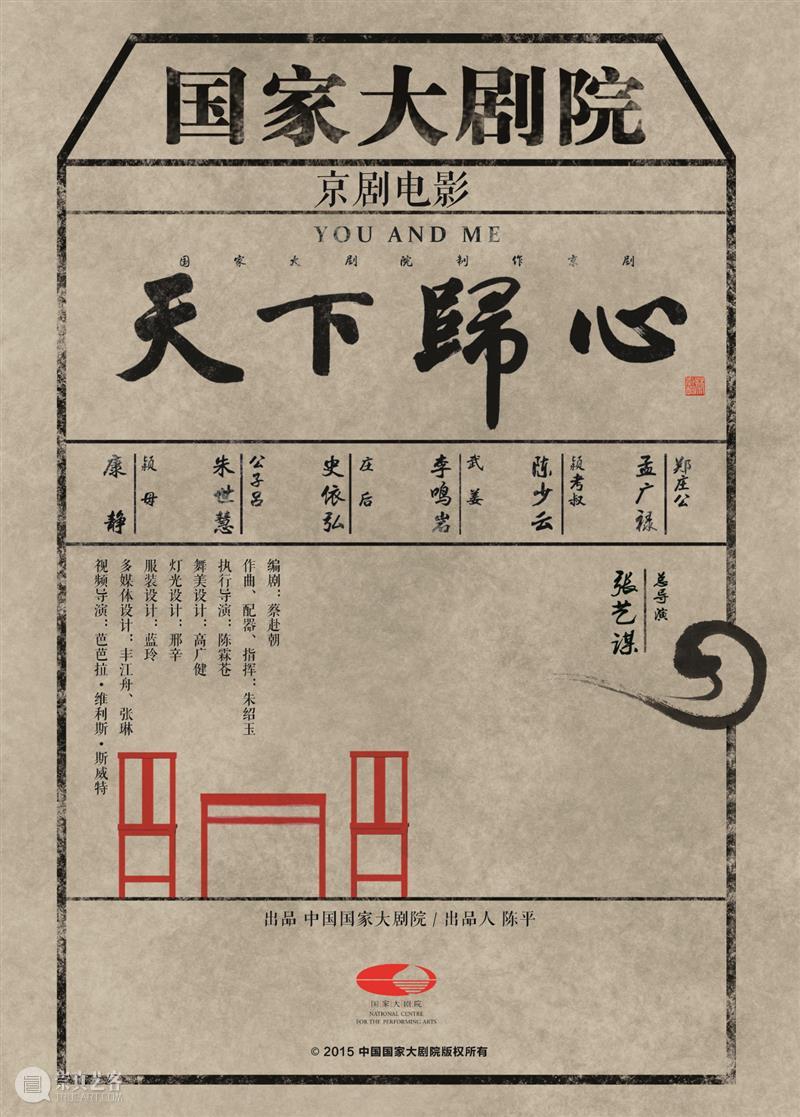 国家大剧院
京剧电影
YOU AND ME
国家大剧院制作京剧
天下歸心
郑庄公
孟广禄
颍考叔
陈少云
武姜
李鸣岩
庄后
史依弘
公子吕
朱世慧
颍母
康静
总导演
张艺谋
编剧：蔡赴朝
作曲、配器、指挥：朱绍玉
执行导演：陈霖苍
舞美设计：高广健
灯光设计：邢辛
服装设计：蓝玲
多媒体设计：丰江舟、张琳
视频导演：芭芭拉·维利斯·斯威特
出品 中国国家大剧院 / 出品人 陈平
国家大剧院
NATIONAL CENTRE
FOR THE PERFORMING ARTS
© 2015 中国国家大剧院版权所有
崇真艺客
TRUEART.COM